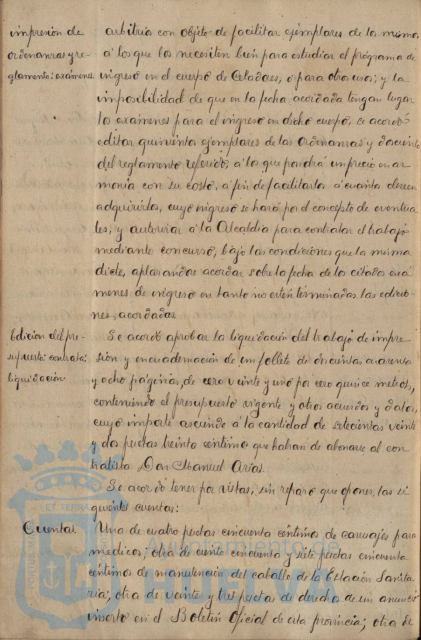 impresión de
ordenanzas y re-
glamento: exámenes
arbitria con objeto de facilitar ejemplares de las mismas
á los que los necesiten bien para estudiar el programa de
ingreso en el cuerpo de Celadores, ó para otro uso; y la
imposibilidad de que en la fecha acordada tengan lugar
los exámenes para el ingreso en dicho cuerpo, se acordó
editar quinientos ejemplares de las Ordenanzas y doscientos
del reglamento referido, á los que pondrá un precio en ar-
monía con su costo, á fin de facilitarlos á cuantos deseen
adquirirlos, cuyo ingreso se hará por el concepto de eventua-
les, y autorizar á la Alcaldía para contratar el trabajo
mediante concurso, bajo las condiciones que la misma
dicte, aplazándose acordar sobre la fecha de los citados exá-
menes de ingreso en tanto no estén terminadas las edicio-
nes acordadas.
Edición del pre-
supuesto: contrata:
liquidación
Se acordó aprobar la liquidación del trabajo de impre-
sión y encuadernación de un folleto de doscientas cuarenta
y ocho páginas, de cero veinte y uno por cero quince metros,
conteniendo el presupuesto vigente y otros acuerdos y datos,
cuyo importe asciende á la cantidad de setecientas veinte
y dos pesetas treinta céntimos que habrán de abonarse al con-
tratista Don Manuel Arias.
Se acordó tener por vistas, sin reparo que oponer, las si-
guientes cuentas:
Cuentas
Una de cuatro pesetas cincuenta céntimos de carruajes para
médicos; otra de ciento cincuenta y siete pesetas cincuenta
céntimos de manutención del caballo de la Estación Sanita-
ria; otra de veinte y tres pesetas de derechos de un anuncio
inserto en el Boletín Oficial de esta provincia; otra de